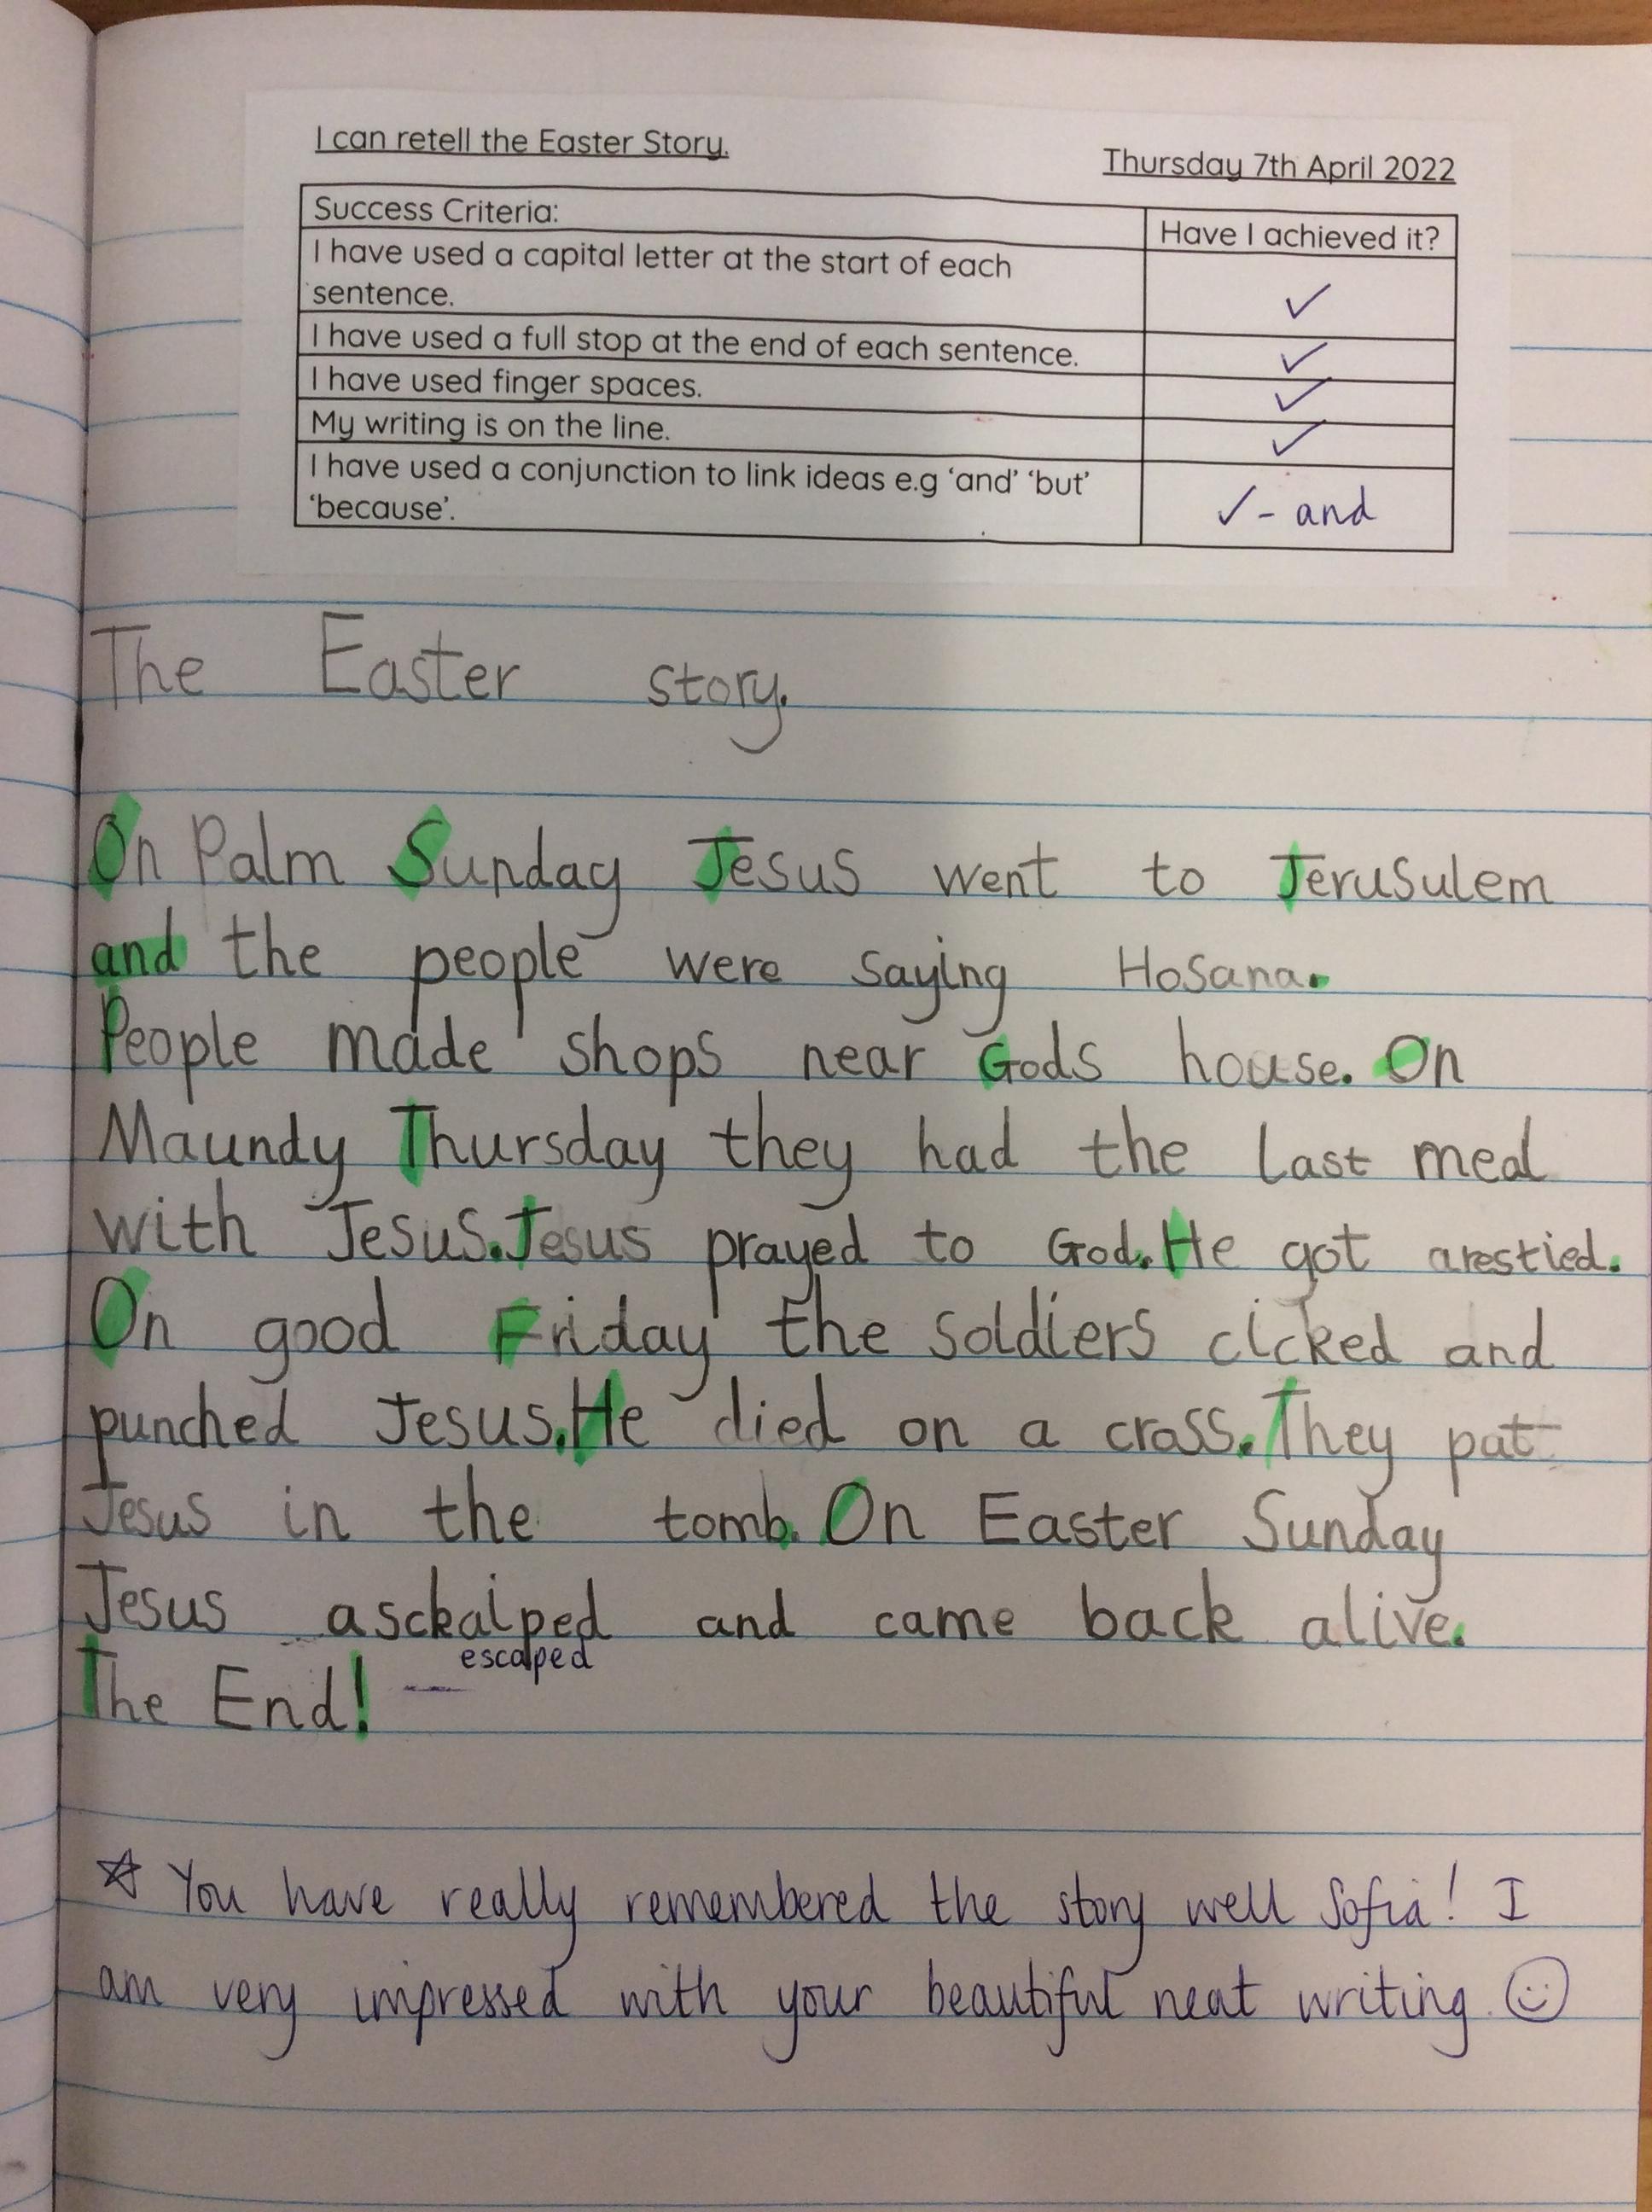 I can retell the Easter Story.
Thursday 7th April 2022
Success Criteria:
Have I achieved it?
I have used a capital letter at the start of each
sentence.
✓
I have used a full stop at the end of each sentence.
✓
I have used finger spaces.
✓
My writing is on the line.
✓
I have used a conjunction to link ideas e.g 'and' 'but'
'because'.
✓ - and
The Easter story.
On Palm Sunday Jesus went to Jerusulem
and the people were saying Hosana.
People made shops near Gods house. On
Maundy Thursday they had the last meal
with Jesus. Jesus prayed to God. He got arestied.
On good Friday the soldiers cicked and
punched Jesus. He died on a cross. They pat
Jesus in the tomb. On Easter Sunday
Jesus asckaiped and came back alive.
escaped
The End!
☆ You have really remembered the story well Sofia! I
am very impressed with your beautiful neat writing. ☺